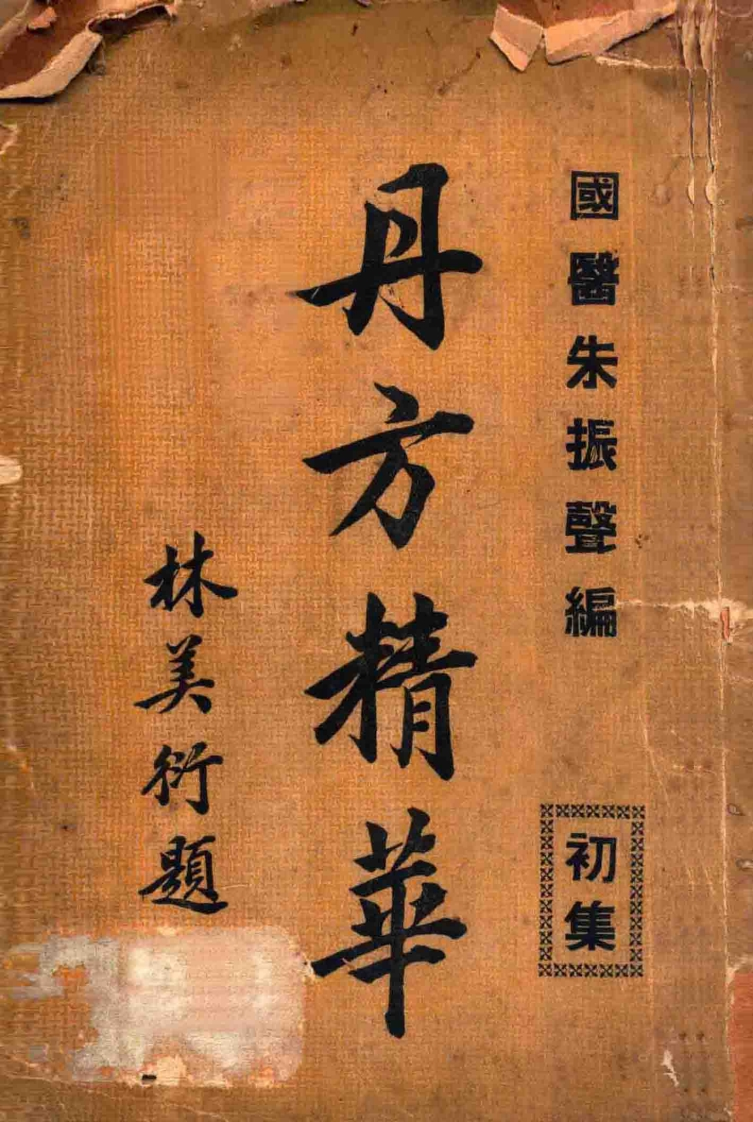 國醫朱振聲編
初集
丹方精華
林美衍題